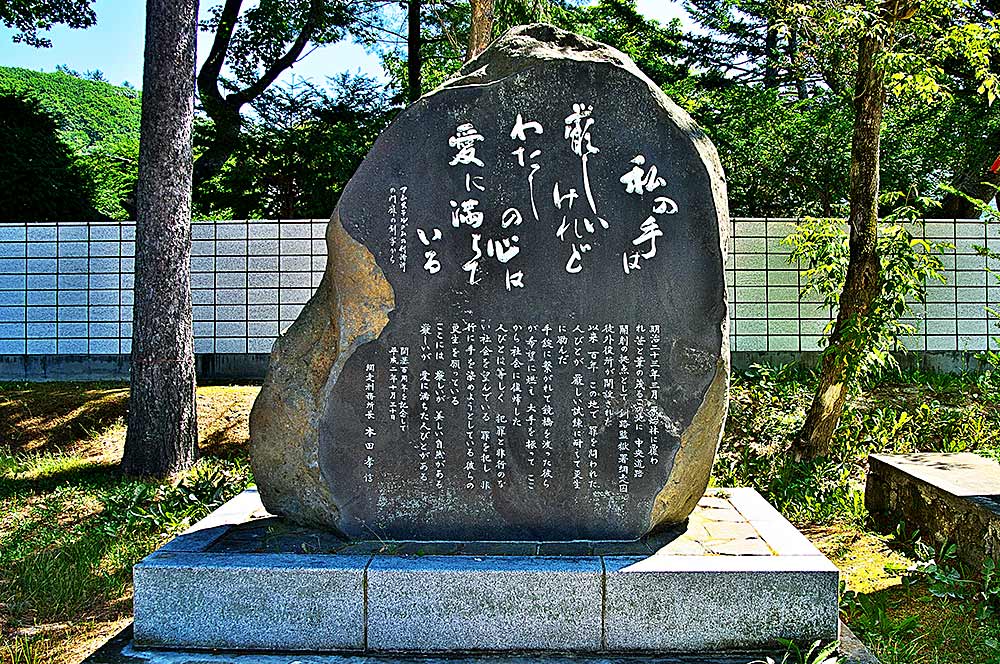 私の手は
厳しい
けれど
わたし
の心は
愛に満ちて
いる
アムステルダムの刑務所
の門扉の刻字から
明治二十三年三月 原始林に覆わ
れ笹と葦の茂るこの地に 中央道路
開削の拠点として 釧路監獄署網走囚
徒外役所が開設された
以来 百年 この地で 罪を問われた
人びとが 厳しい試練に耐えて更生
に励んだ
手錠に繋がれて鏡橋を渡った彼ら
が 希望に燃えて 大手を振って ここ
から社会に復帰した
人びとは等しく 犯罪と非行のな
い社会を望んでいる 罪を犯し 非
行に手を染めようとしている彼らの
更生を願っている
ここには 厳しいが 美しい自然がある
厳しいが 愛に満ちた人びとがある
開基百周年を記念して
平成二年十月三十日
網走刑務所長 本田孝信